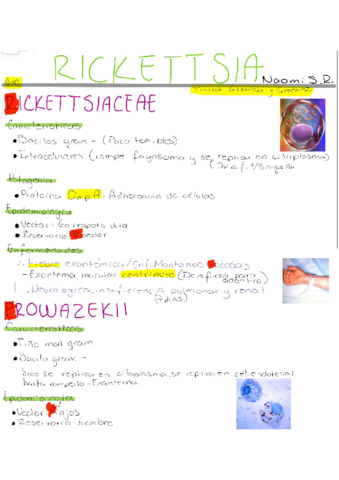 RICKETTSIA
Naomi S.R.
RICKETTSIACEAE
Características
• Bacilos gram - (Poco teñibles)
• Intracelulares (rompe fagosoma y se replica en citoplasma)
Patogenia
• Proteína OmpA - Adherencia de células
Epidemiología
• Vector:
• Reservorio:
Enfermedades
Fiebre exantémica/Enf. Montañas Rocosas
- Exantema macular centrípeto (De afuera para adentro)
Neurológicos, insuficiencia pulmonar y renal
PROWAZEKII
Características
• Tiñe mal gram
• Bacilo gram -
se replica en citoplasma, se replica en cel. endotelial
hasta romperlo - Exantema
Epidemiología
• Vector: Piojos
• Reservorio: hombre